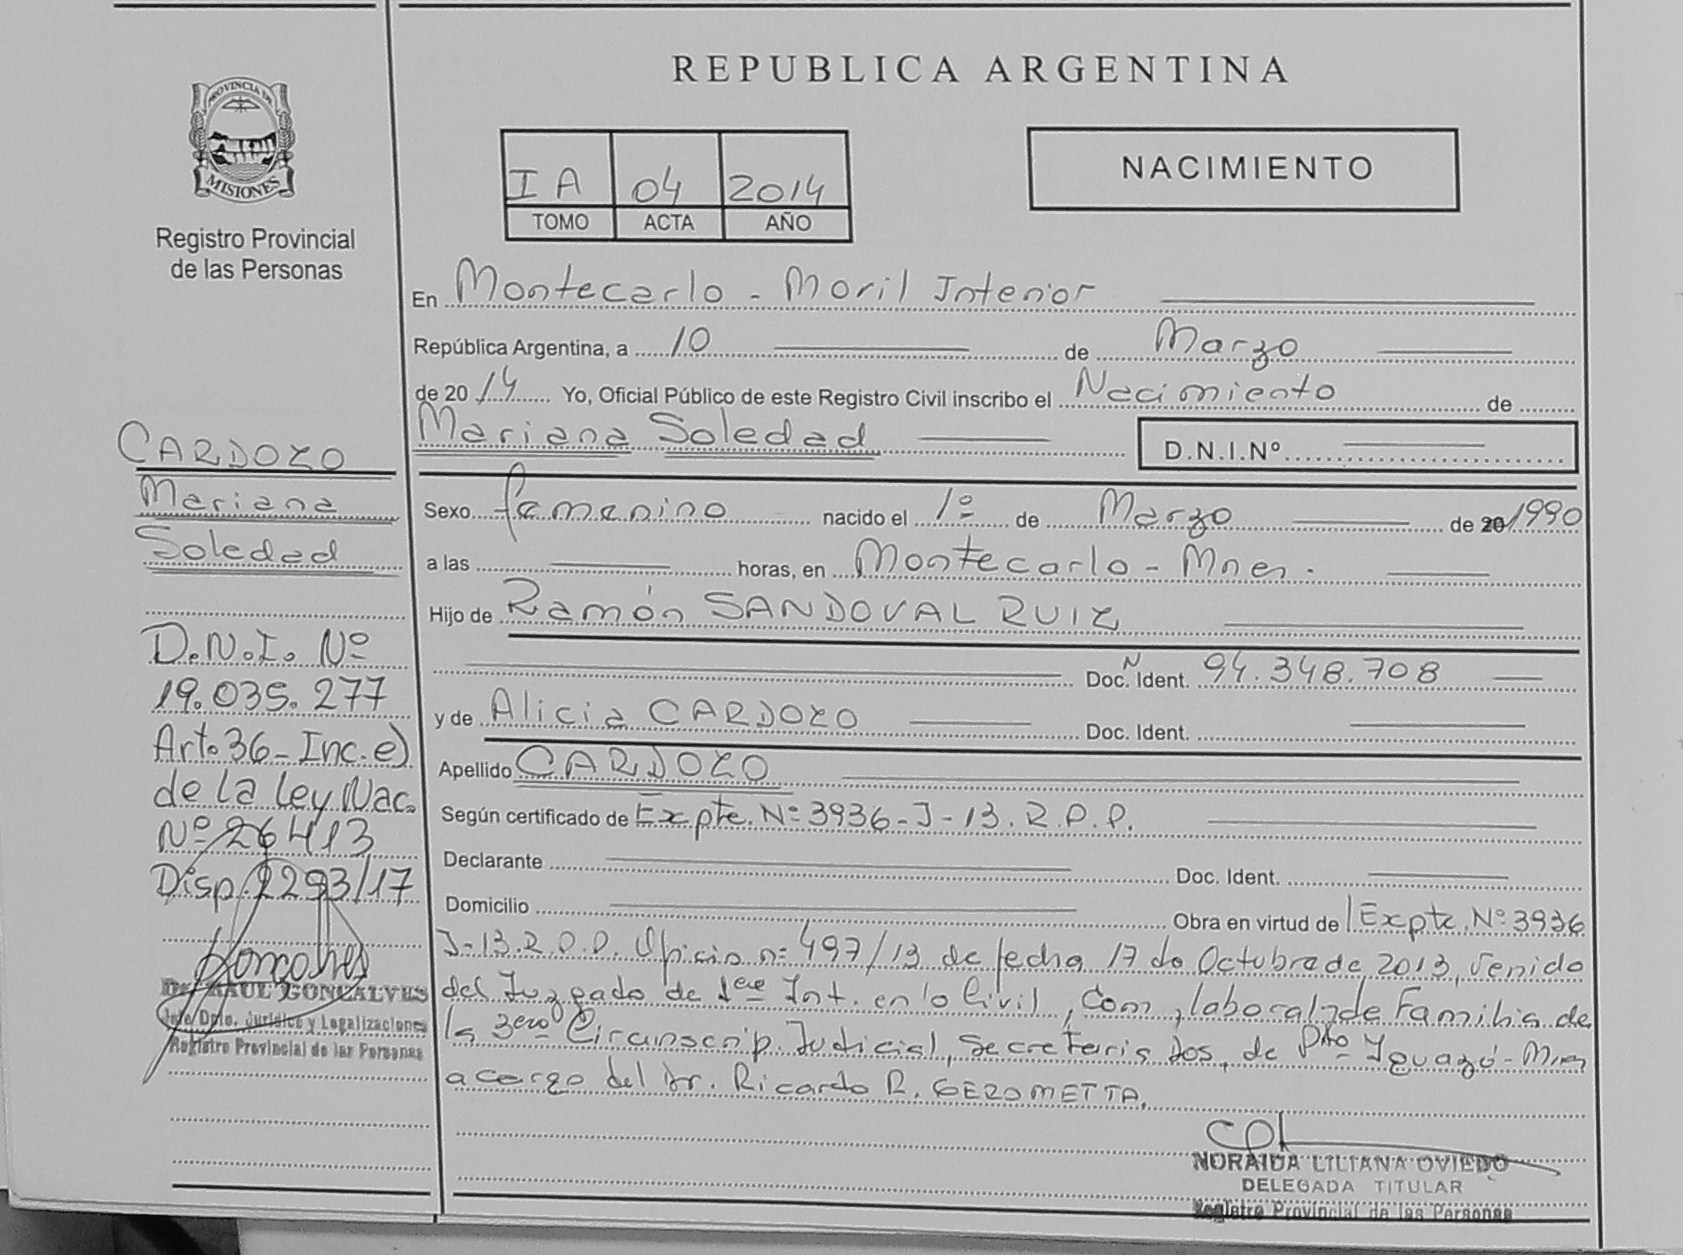 PROVINCIA DE
MISIONES
Registro Provincial
de las Personas
CARDOZO
Mariana
Soledad
D.N.I. Nº
19.035.277
Art. 36 - Inc. e)
de la ley Nac.
Nº 26413
Disp. 2293/17
Dr. RAUL GONCALVES
Jefe Dpto. Jurídico y Legalizaciones
Registro Provincial de las Personas
REPUBLICA ARGENTINA
IA 04 2014
TOMO ACTA AÑO
NACIMIENTO
En Montecarlo - Moril Interior
República Argentina, a 10 de Marzo
de 20 14 Yo, Oficial Público de este Registro Civil inscribo el Nacimiento de
Mariana Soledad D.N.I.Nº
Sexo femenino nacido el 1º de Marzo de 20 1990
a las horas, en Montecarlo - Mnes.
Hijo de Ramón SANDOVAL RUIZ
Doc. N Ident. 94.348.708
y de Alicia CARDOZO Doc. Ident.
Apellido CARDOZO
Según certificado de Expte. Nº 3936-J-13.R.P.P.
Declarante Doc. Ident.
Domicilio Obra en virtud de Expte. Nº 3936
J-13.R.P.P. Oficio nº 497/13 de fecha 17 de Octubre de 2013, venido
del Juzgado de 1era Int. en lo Civil, Com, laboral y de Familia de
la 3era Circunscrip. Judicial, Secretaria Dos, de Pto Iguazú - Mnes
a cargo del Dr. Ricardo R. GEROMETTA.
NORAIDA LILIANA OVIEDO
DELEGADA TITULAR
Registro Provincial de las Personas